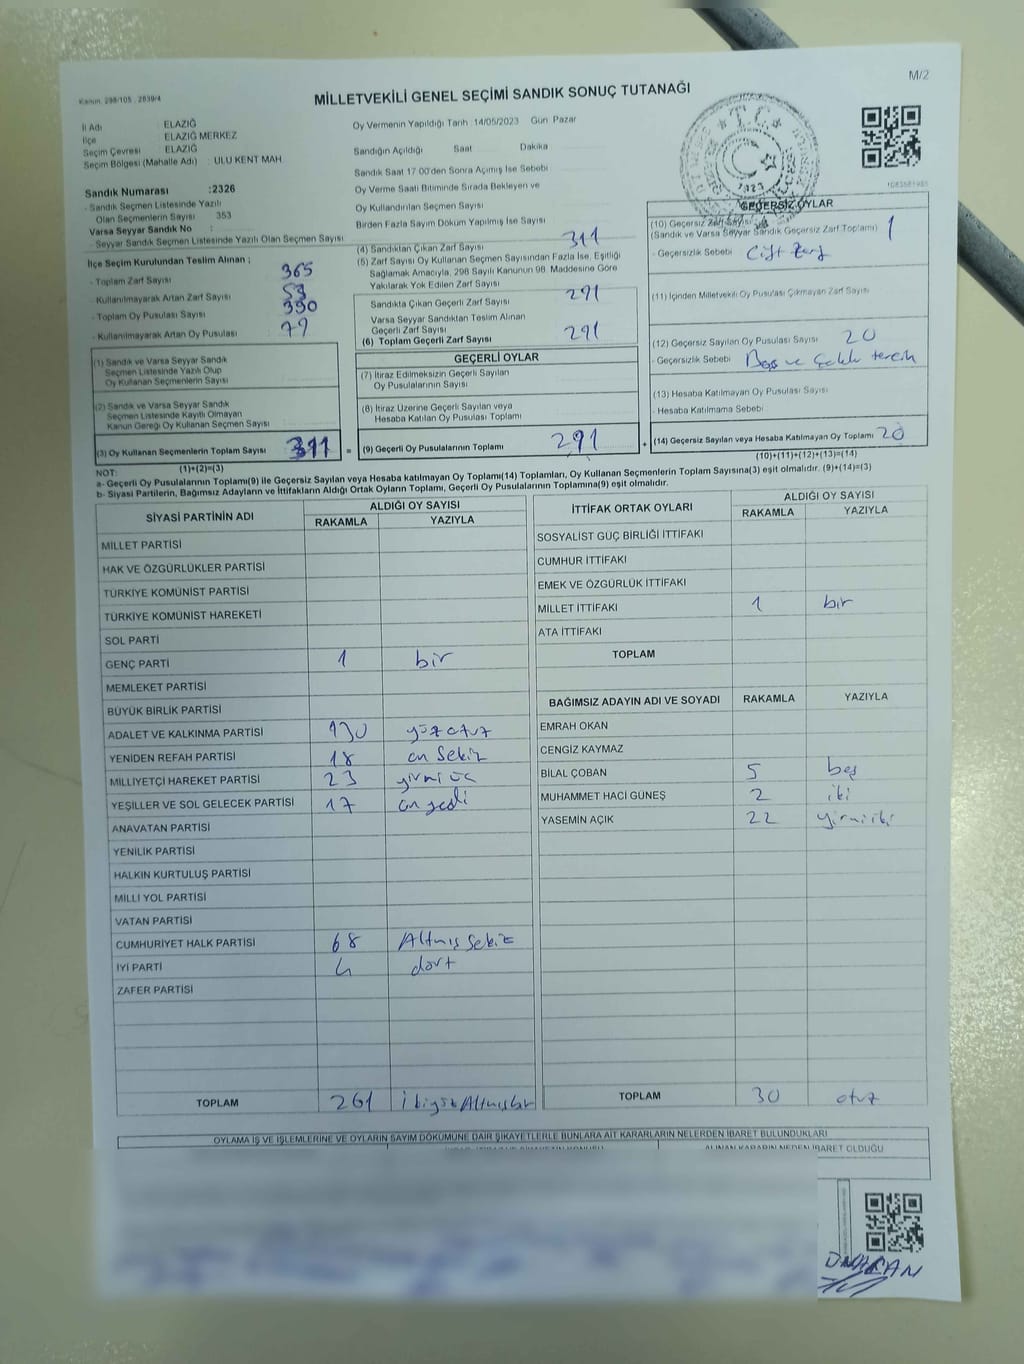 M/2
Kanun. 298/105 , 2839/4
MİLLETVEKİLİ GENEL SEÇİMİ SANDIK SONUÇ TUTANAĞI
İl Adı : ELAZIĞ
İlçe : ELAZIĞ MERKEZ
Seçim Çevresi : ELAZIĞ
Seçim Bölgesi (Mahalle Adı) : ULU KENT MAH
Sandık Numarası :2326
- Sandık Seçmen Listesinde Yazılı
Olan Seçmenlerin Sayısı : 353
Varsa Seyyar Sandık No :
- Seyyar Sandık Seçmen Listesinde Yazılı Olan Seçmen Sayısı
İlçe Seçim Kurulundan Teslim Alınan ;
- Toplam Zarf Sayısı : 365
- Kullanılmayarak Artan Zarf Sayısı : 53
- Toplam Oy Pusulası Sayısı :
- Kullanılmayarak Artan Oy Pusulası : 79
(1) Sandık ve Varsa Seyyar Sandık
Seçmen Listesinde Yazılı Olup
Oy Kullanan Seçmenlerin Sayısı :
(2) Sandık ve Varsa Seyyar Sandık
Seçmen Listesinde Kayıtlı Olmayan
Kanun Gereği Oy Kullanan Seçmen Sayısı :
(3) Oy Kullanan Seçmenlerin Toplam Sayısı : 311
(1)+(2)=(3)
Oy Vermenin Yapıldığı Tarih :14/05/2023 Gün Pazar
Sandığın Açıldığı Saat Dakika
Sandık Saat 17 00'den Sonra Açılmış İse Sebebi
Oy Verme Saati Bitiminde Sırada Bekleyen ve
Oy Kullandırılan Seçmen Sayısı
Birden Fazla Sayım Döküm Yapılmış İse Sayısı
(4) Sandıktan Çıkan Zarf Sayısı 311
(5) Zarf Sayısı Oy Kullanan Seçmen Sayısından Fazla İse, Eşitliği
Sağlamak Amacıyla, 298 Sayılı Kanunun 98. Maddesine Göre
Yakılarak Yok Edilen Zarf Sayısı
Sandıkta Çıkan Geçerli Zarf Sayısı 291
Varsa Seyyar Sandıktan Teslim Alınan
Geçerli Zarf Sayısı
(6) Toplam Geçerli Zarf Sayısı 291
GEÇERLİ OYLAR
(7) İtiraz Edilmeksizin Geçerli Sayılan
Oy Pusulalarının Sayısı
(8) İtiraz Üzerine Geçerli Sayılan veya
Hesaba Katılan Oy Pusulası Toplamı
= (9) Geçerli Oy Pusulalarının Toplamı 291
T.C.
1923
1083581985
GEÇERSİZ OYLAR
(10) Geçersiz Zarf Sayısı
(Sandık ve Varsa Seyyar Sandık Geçersiz Zarf Toplamı) 1
- Geçersizlik Sebebi Çift Zarf
(11) İçinden Milletvekili Oy Pusulası Çıkmayan Zarf Sayısı
(12) Geçersiz Sayılan Oy Pusulası Sayısı 20
- Geçersizlik Sebebi Boş ve Çoklu tercih
(13) Hesaba Katılmayan Oy Pusulası Sayısı
- Hesaba Katılmama Sebebi
+ (14) Geçersiz Sayılan veya Hesaba Katılmayan Oy Toplamı 20
(10)+(11)+(12)+(13)=(14)
NOT:
a- Geçerli Oy Pusulalarının Toplamı(9) ile Geçersiz Sayılan veya Hesaba katılmayan Oy Toplamı(14) Toplamları, Oy Kullanan Seçmenlerin Toplam Sayısına(3) eşit olmalıdır. (9)+(14)=(3)
b- Siyasi Partilerin, Bağımsız Adayların ve İttifakların Aldığı Ortak Oyların Toplamı, Geçerli Oy Pusulalarının Toplamına(9) eşit olmalıdır.
SİYASİ PARTİNİN ADI
ALDIĞI OY SAYISI
RAKAMLA YAZIYLA
MİLLET PARTİSİ
HAK VE ÖZGÜRLÜKLER PARTİSİ
TÜRKİYE KOMÜNİST PARTİSİ
TÜRKİYE KOMÜNİST HAREKETİ
SOL PARTİ
GENÇ PARTİ 1 bir
MEMLEKET PARTİSİ
BÜYÜK BİRLİK PARTİSİ
ADALET VE KALKINMA PARTİSİ 130 yüzotuz
YENİDEN REFAH PARTİSİ 18 on sekiz
MİLLİYETÇİ HAREKET PARTİSİ 23 yirmi üç
YEŞİLLER VE SOL GELECEK PARTİSİ 17 on yedi
ANAVATAN PARTİSİ
YENİLİK PARTİSİ
HALKIN KURTULUŞ PARTİSİ
MİLLİ YOL PARTİSİ
VATAN PARTİSİ
CUMHURİYET HALK PARTİSİ 68 Altmış Sekiz
İYİ PARTİ 4 dört
ZAFER PARTİSİ
TOPLAM 261 ikiyüz Altmışbir
İTTİFAK ORTAK OYLARI
ALDIĞI OY SAYISI
RAKAMLA YAZIYLA
SOSYALİST GÜÇ BİRLİĞİ İTTİFAKI
CUMHUR İTTİFAKI
EMEK VE ÖZGÜRLÜK İTTİFAKI
MİLLET İTTİFAKI 1 bir
ATA İTTİFAKI
TOPLAM
BAĞIMSIZ ADAYIN ADI VE SOYADI RAKAMLA YAZIYLA
EMRAH OKAN
CENGİZ KAYMAZ
BİLAL ÇOBAN 5 beş
MUHAMMET HACI GÜNEŞ 2 iki
YASEMİN AÇIK 22 yirmi iki
TOPLAM 30 otuz
OYLAMA İŞ VE İŞLEMLERİNE VE OYLARIN SAYIM DÖKÜMÜNE DAİR ŞİKAYETLERLE BUNLARA AİT KARARLARIN NELERDEN İBARET BULUNDUKLARI
ALINAN KARARIN NEDEN İBARET OLDUĞU